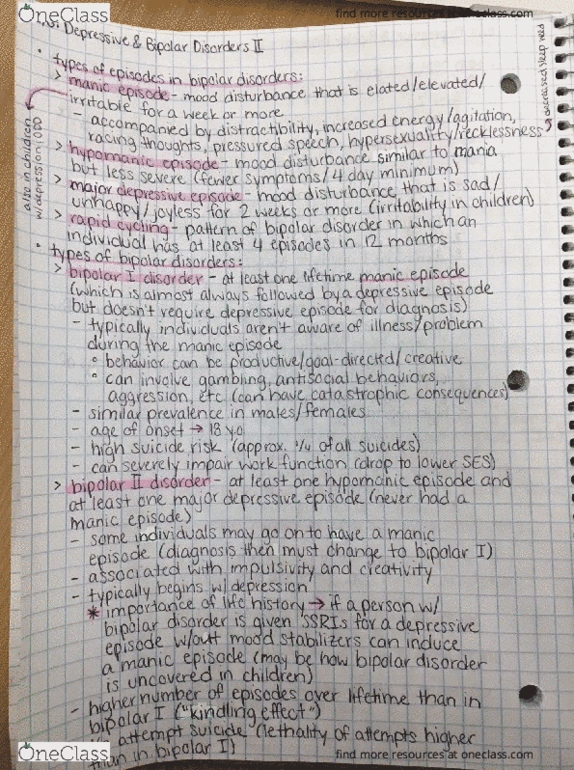 OneClass
find more resources at oneclass.com
Depressive & Bipolar Disorders II
• types of episodes in bipolar disorders:
> manic episode - mood disturbance that is elated/elevated/
irritable for a week or more
- accompanied by distractibility, increased energy/agitation,
racing thoughts, pressured speech, hypersexuality/recklessness
decreased sleep need
also in children
w/depression/ODD
> hypomanic episode - mood disturbance similar to mania
but less severe (fewer symptoms/4 day minimum)
> major depressive episode - mood disturbance that is sad/
unhappy/joyless for 2 weeks or more (irritability in children)
> rapid cycling - pattern of bipolar disorder in which an
individual has at least 4 episodes in 12 months
• types of bipolar disorders:
> bipolar I disorder - at least one lifetime manic episode
(which is almost always followed by a depressive episode
but doesn't require depressive episode for diagnosis)
- typically individuals aren't aware of illness/problem
during the manic episode
° behavior can be productive/goal-directed/creative
° can involve gambling, antisocial behaviors,
aggression, etc (can have catastrophic consequences)
- similar prevalence in males/females
- age of onset → 18 y.o
- high suicide risk (approx. 1/4 of all suicides)
- can severely impair work function (drop to lower SES)
> bipolar II disorder - at least one hypomanic episode and
at least one major depressive episode (never had a
manic episode)
- some individuals may go on to have a manic
episode (diagnosis then must change to bipolar I)
- associated with impulsivity and creativity
- typically begins w/ depression
* importance of life history → if a person w/
bipolar disorder is given SSRIs for a depressive
episode w/out mood stabilizers can induce
a manic episode (may be how bipolar disorder
is uncovered in children)
- higher number of episodes over lifetime than in
bipolar I ("kindling effect")
attempt suicide (lethality of attempts higher
than in bipolar I)
OneClass
find more resources at oneclass.com